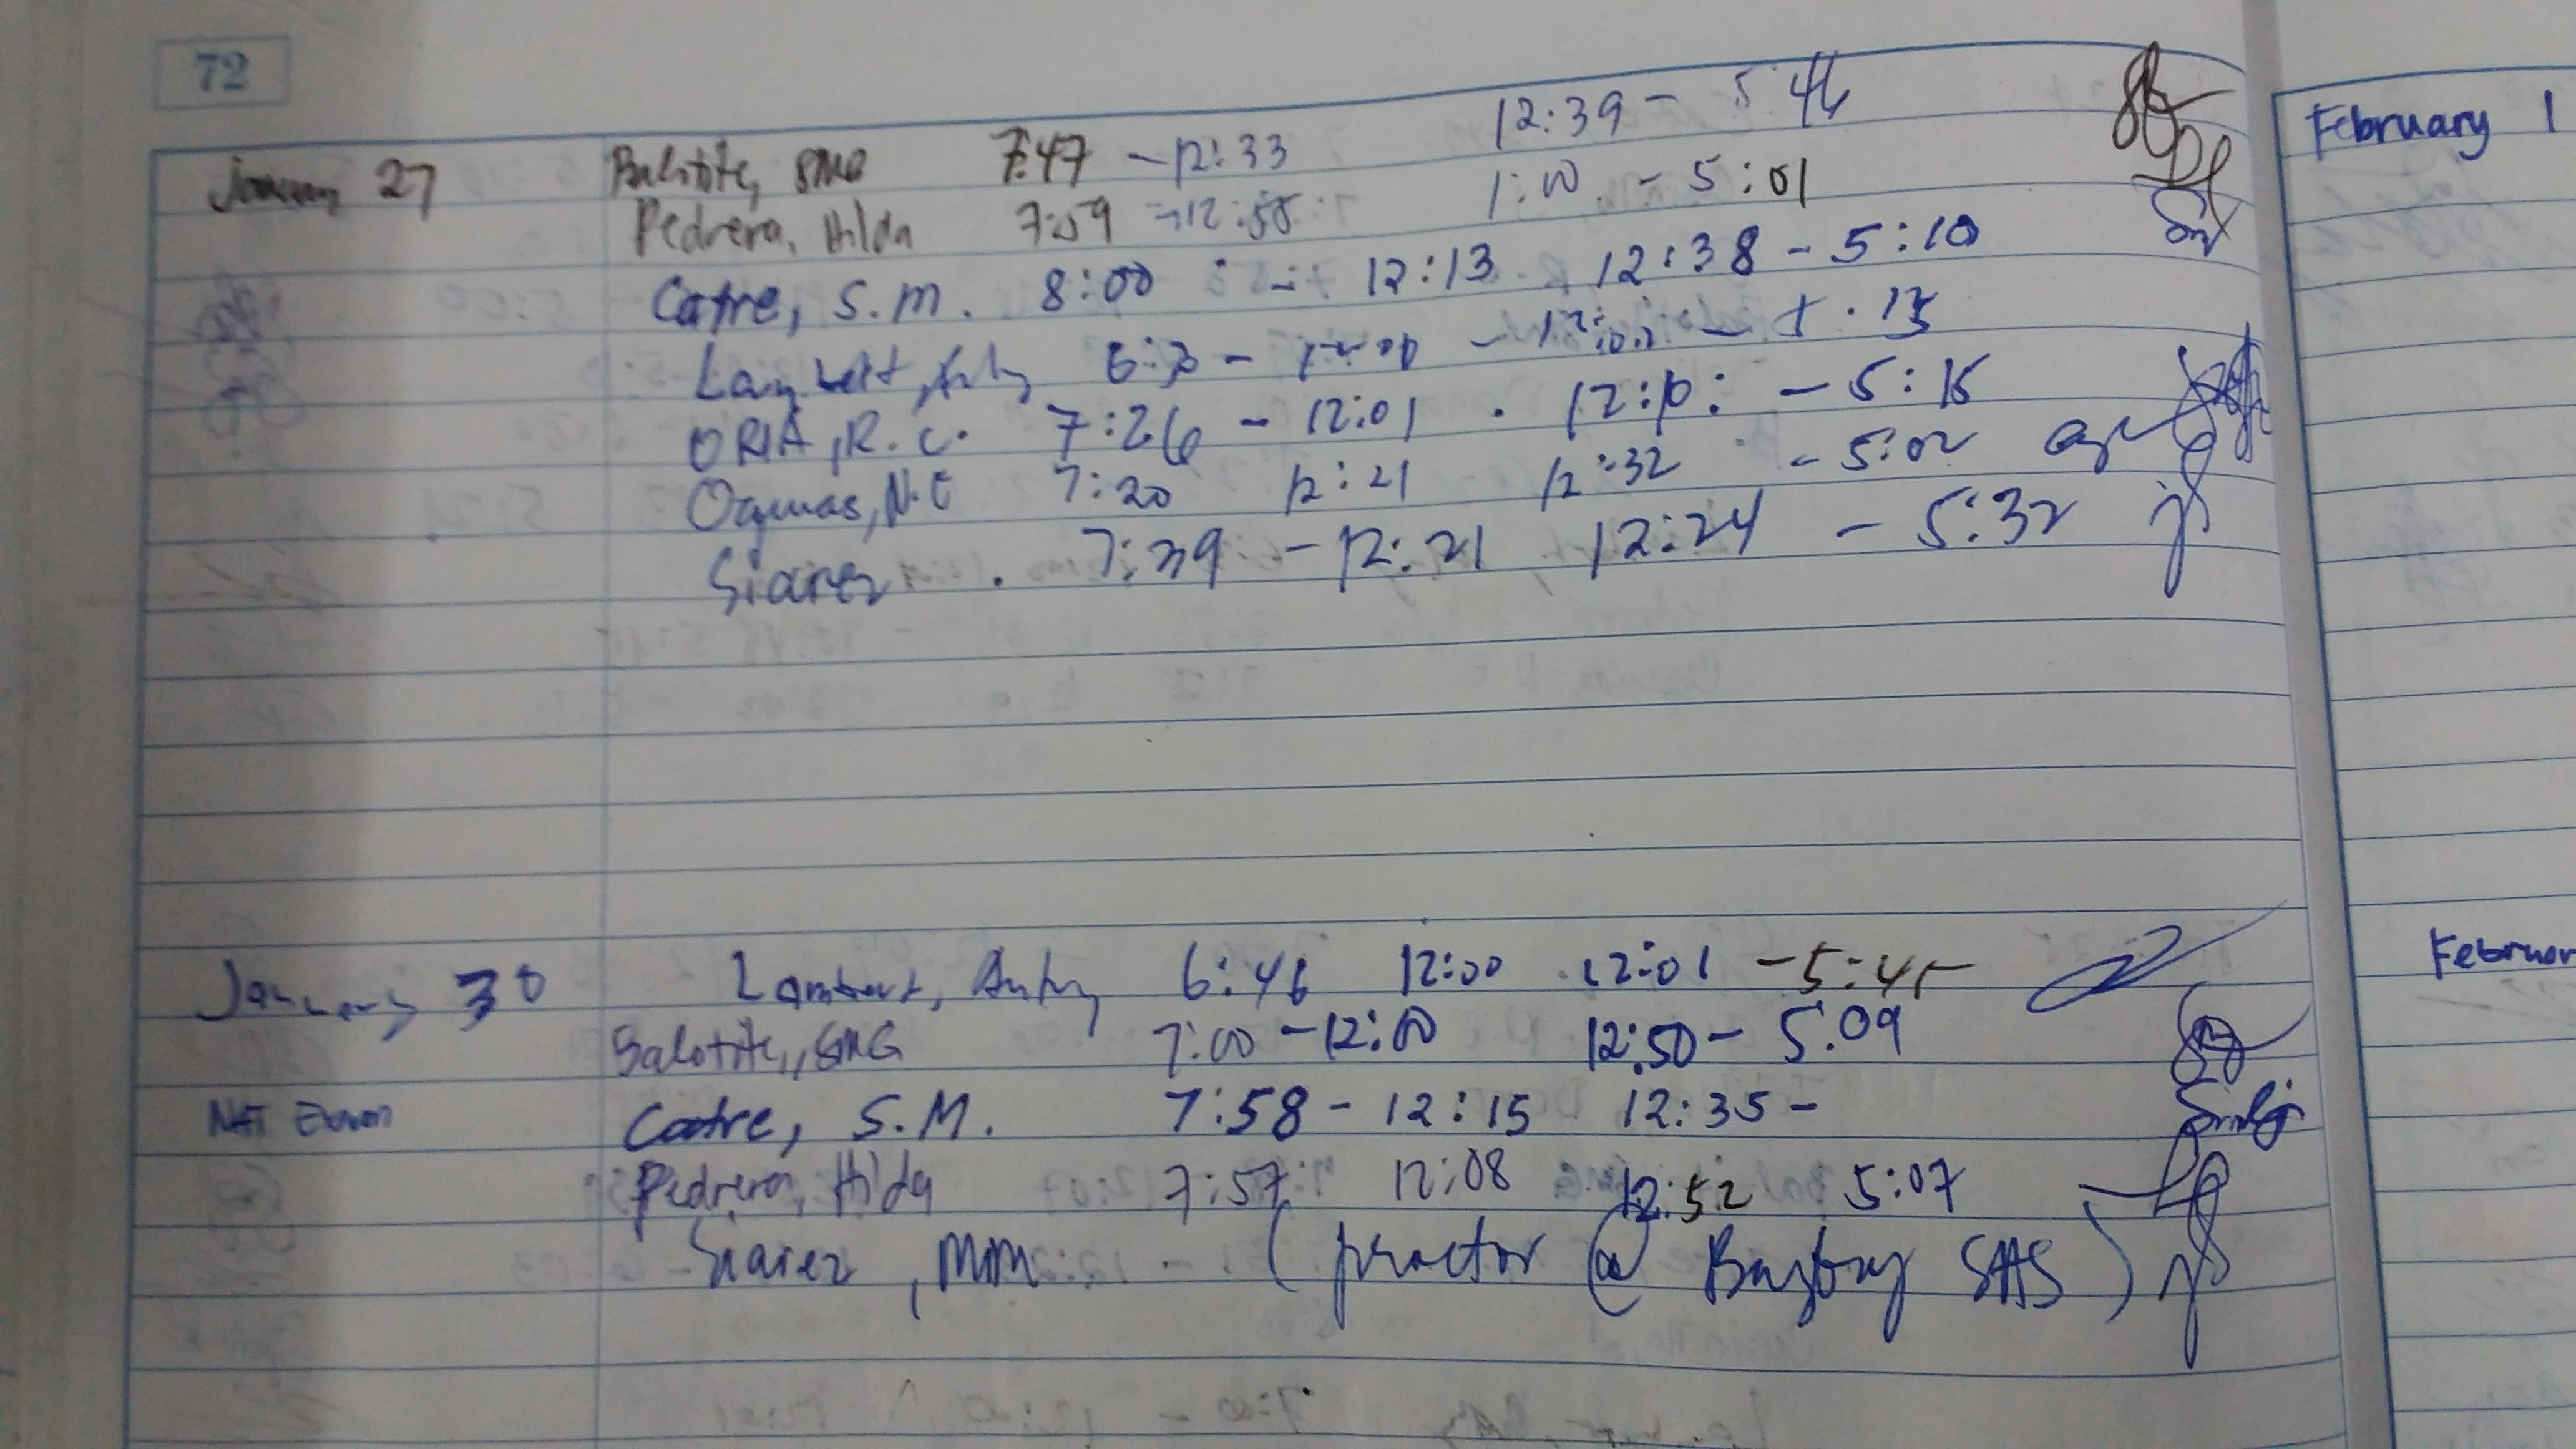 72
January 27 Balotite, SMG 7:47 - 12:33 12:39 - 5:46
Pedrera, Hilda 7:59 - 12:58 1:00 - 5:01
Catre, S.M. 8:00 - 12:13 12:38 - 5:10
Lambert, 6:30 -
ORIA, R.C. 7:26 - 12:01 . 12:10: - 5:15
N.C 7:20 12:21 12:32 - 5:02
Siarez . 7:39 - 12:21 12:24 - 5:32
January 30 Lambert, 6:46 12:00 12:01 - 5:45
Balotite, SMG 7:00 - 12:00 12:50 - 5:09
NAT Exam Catre, S.M. 7:58 - 12:15 12:35 -
Pedrera, Hilda 7:57 12:08 12:52 5:07
Siarez, MM (proctor @ Baybay SHS)
February 1
Februar